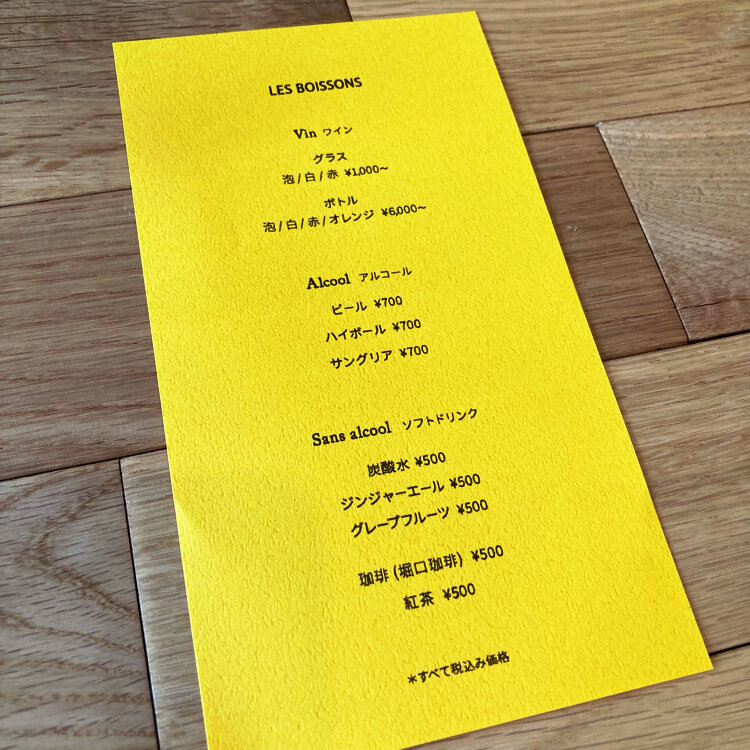 LES BOISSONS
Vin ワイン
グラス
泡/白/赤 ¥1,000~
ボトル
泡/白/赤/オレンジ ¥6,000~
Alcool アルコール
ビール ¥700
ハイボール ¥700
サングリア ¥700
Sans alcool ソフトドリンク
炭酸水 ¥500
ジンジャーエール ¥500
グレープフルーツ ¥500
珈琲 (堀口珈琲) ¥500
紅茶 ¥500
*すべて税込み価格